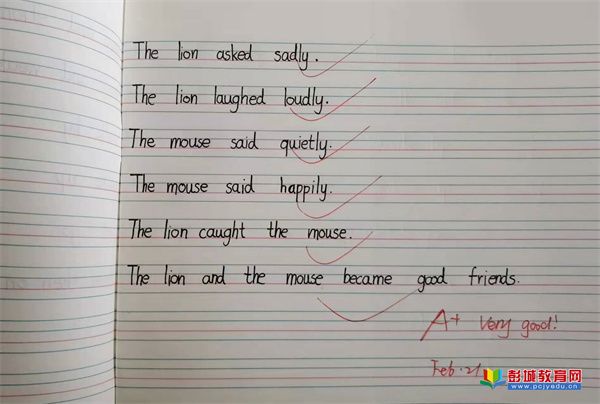 The lion asked sadly.
The lion laughed loudly.
The mouse said quietly.
The mouse said happily.
The lion caught the mouse.
The lion and the mouse became good friends.
A+ Very good!
Feb. 21
彭城教育网
www.pcjyedu.cn